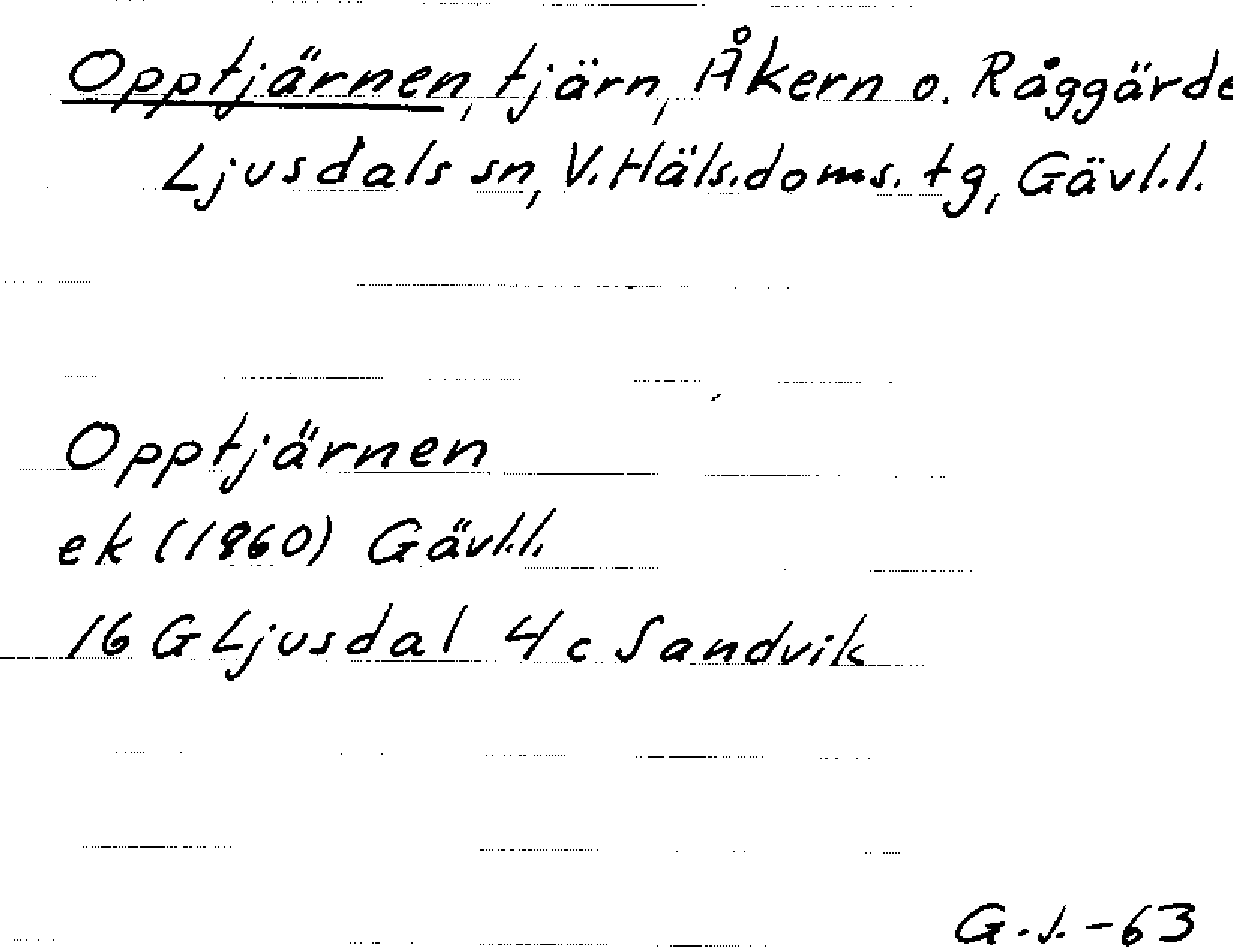 Opptjärnen, tjärn, Åkern o. Råggärde
Ljusdals sn, V. Häls. doms. tg, Gävl.l.
Opptjärnen
ek (1960) Gävl.l.
16 G Ljusdal 4 c Sandvik
G.J. -63